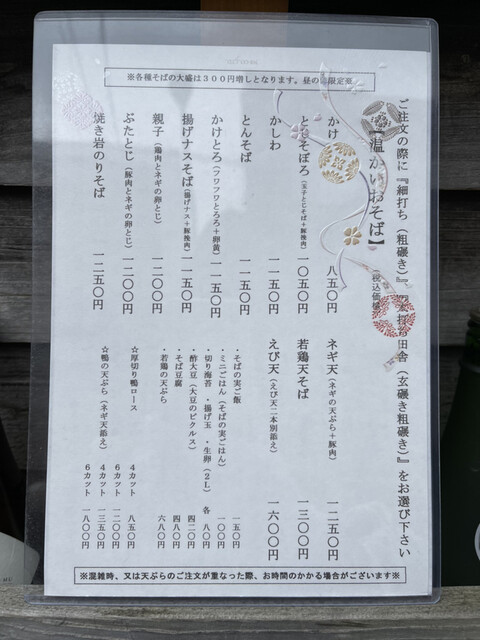 ※各種そばの大盛は300円増しとなります。昼の部限定※
ご注文の際に『細打ち(粗碾き)』、『太打ち田舎(玄碾き粗碾き)』をお選び下さい
【温かいおそば】
(税込価格)
かけ 八五〇円
とじそぼろ(玉子とじそば+豚挽肉) 一〇五〇円
かしわ 一一五〇円
とんそば 一一五〇円
かけとろ(フワフワとろろ+卵黄) 一一五〇円
揚げナスそば(揚げナス+豚挽肉) 一一五〇円
親子(鶏肉とネギの卵とじ) 一二〇〇円
ぶたとじ(豚肉とネギの卵とじ) 一二〇〇円
焼き岩のりそば 一二五〇円
ネギ天(ネギの天ぷら+豚肉) 一二五〇円
若鶏天そば 一三〇〇円
えび天(えび天二本別添え) 一六〇〇円
・そばの実ご飯 一五〇円
・ミニごはん(そばの実ごはん) 一〇〇円
・切り海苔 ・揚げ玉 ・生卵(2L) 各 八〇円
・酢大豆(大豆のピクルス) 四二〇円
・そば豆腐 四八〇円
・若鶏の天ぷら 六八〇円
☆厚切り鴨ロース 4カット 八五〇円
6カット 一二〇〇円
☆鴨の天ぷら(ネギ天添え) 4カット 一三五〇円
6カット 一八〇〇円
※混雑時、又は天ぷらのご注文が重なった際、お時間のかかる場合がございます※